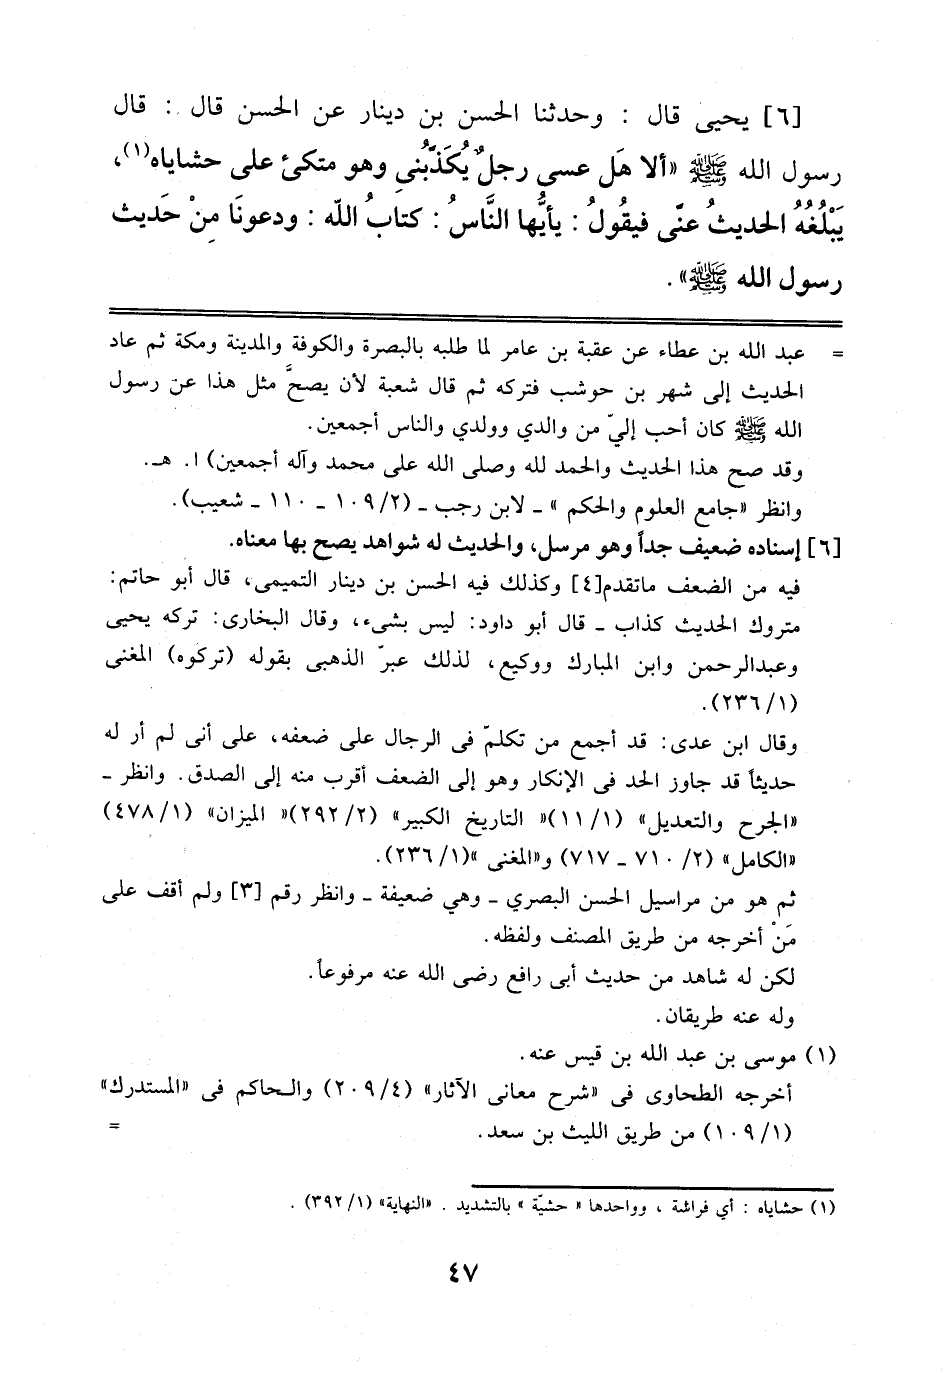 [٦] يحيى قال : وحدثنا الحسن بن دينار عن الحسن قال : قال
رسول الله ﷺ «ألا هَل عسى رجلٌ يُكَذِّبُني وهو متكئ على حشاياه(١)،
يَبْلُغُهُ الحديثُ عنّى فيقُولُ : يأيُّها النَّاسُ : كتابُ اللّه : ودعونَا مِنْ حَديث
رسول الله ﷺ» .
= عبد الله بن عطاء عن عقبة بن عامر لما طلبه بالبصرة والكوفة والمدينة ومكة ثم عاد
الحديث إلى شهر بن حوشب فتركه ثم قال شعبة لأن يصحَّ مثل هذا عن رسول
الله ﷺ كان أحب إليّ من والدي وولدي والناس أجمعين.
وقد صح هذا الحديث والحمد لله وصلى الله على محمد وآله أجمعين) ا. هـ.
وانظر «جامع العلوم والحكم » ـ لابن رجب ـ (٢/ ١٠٩ ـ ١١٠ ـ شعيب).
[٦] إسناده ضعيف جداً وهو مرسل، والحديث له شواهد يصح بها معناه.
فيه من الضعف ماتقدم[٤] وكذلك فيه الحسن بن دينار التميمى، قال أبو حاتم:
متروك الحديث كذاب ـ قال أبو داود: ليس بشىء، وقال البخارى: تركه يحيى
وعبدالرحمن وابن المبارك ووكيع، لذلك عبرّ الذهبى بقوله (تركوه) المغنى
(١/ ٢٣٦).
وقال ابن عدى: قد أجمع من تكلمّ فى الرجال على ضعفه، على أنى لم أر له
حديثاً قد جاوز الحد فى الإنكار وهو إلى الضعف أقرب منه إلى الصدق. وانظر ـ
«الجرح والتعديل» (١/ ١١)« التاريخ الكبير» (٢/ ٢٩٢)« الميزان» (١/ ٤٧٨)
«الكامل» (٢/ ٧١٠ ـ ٧١٧) و«المغنى »(١/ ٢٣٦).
ثم هو من مراسيل الحسن البصري ـ وهي ضعيفة ـ وانظر رقم [٣] ولم أقف على
مَنْ أخرجه من طريق المصنف ولفظه.
لكن له شاهد من حديث أبى رافع رضى الله عنه مرفوعاً.
وله عنه طريقان.
(١) موسى بن عبد الله بن قيس عنه.
أخرجه الطحاوى فى «شرح معانى الآثار» (٤/ ٢٠٩) والحاكم فى «المستدرك»
(١/ ١٠٩) من طريق الليث بن سعد. =
(١) حشاياه : أي فراشة ، وواحدها « حشيّة » بالتشديد . «النهاية» (١/ ٣٩٢) .
٤٧